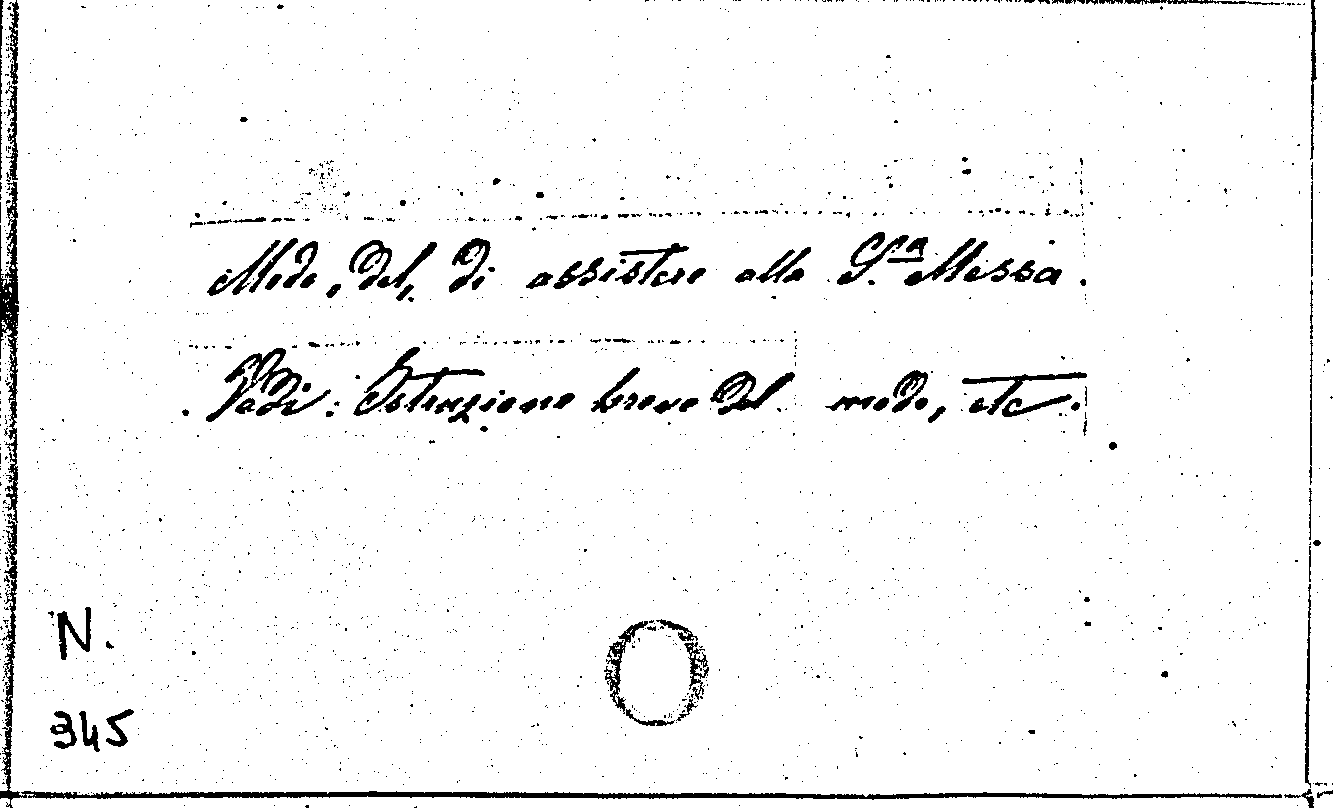 Modo, del, di assistere alla S.ª Messa.
Vedi: Istruzione breve del modo, etc.
N.
345